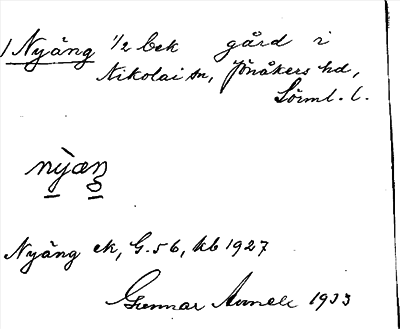 1 Nyäng 1/2 bek gård i
Nikolai sn, Jönåkers hd,
Sörml. l.
nỳæŋ
Nyäng ek, G. 56, kb 1927
Gunnar 1933